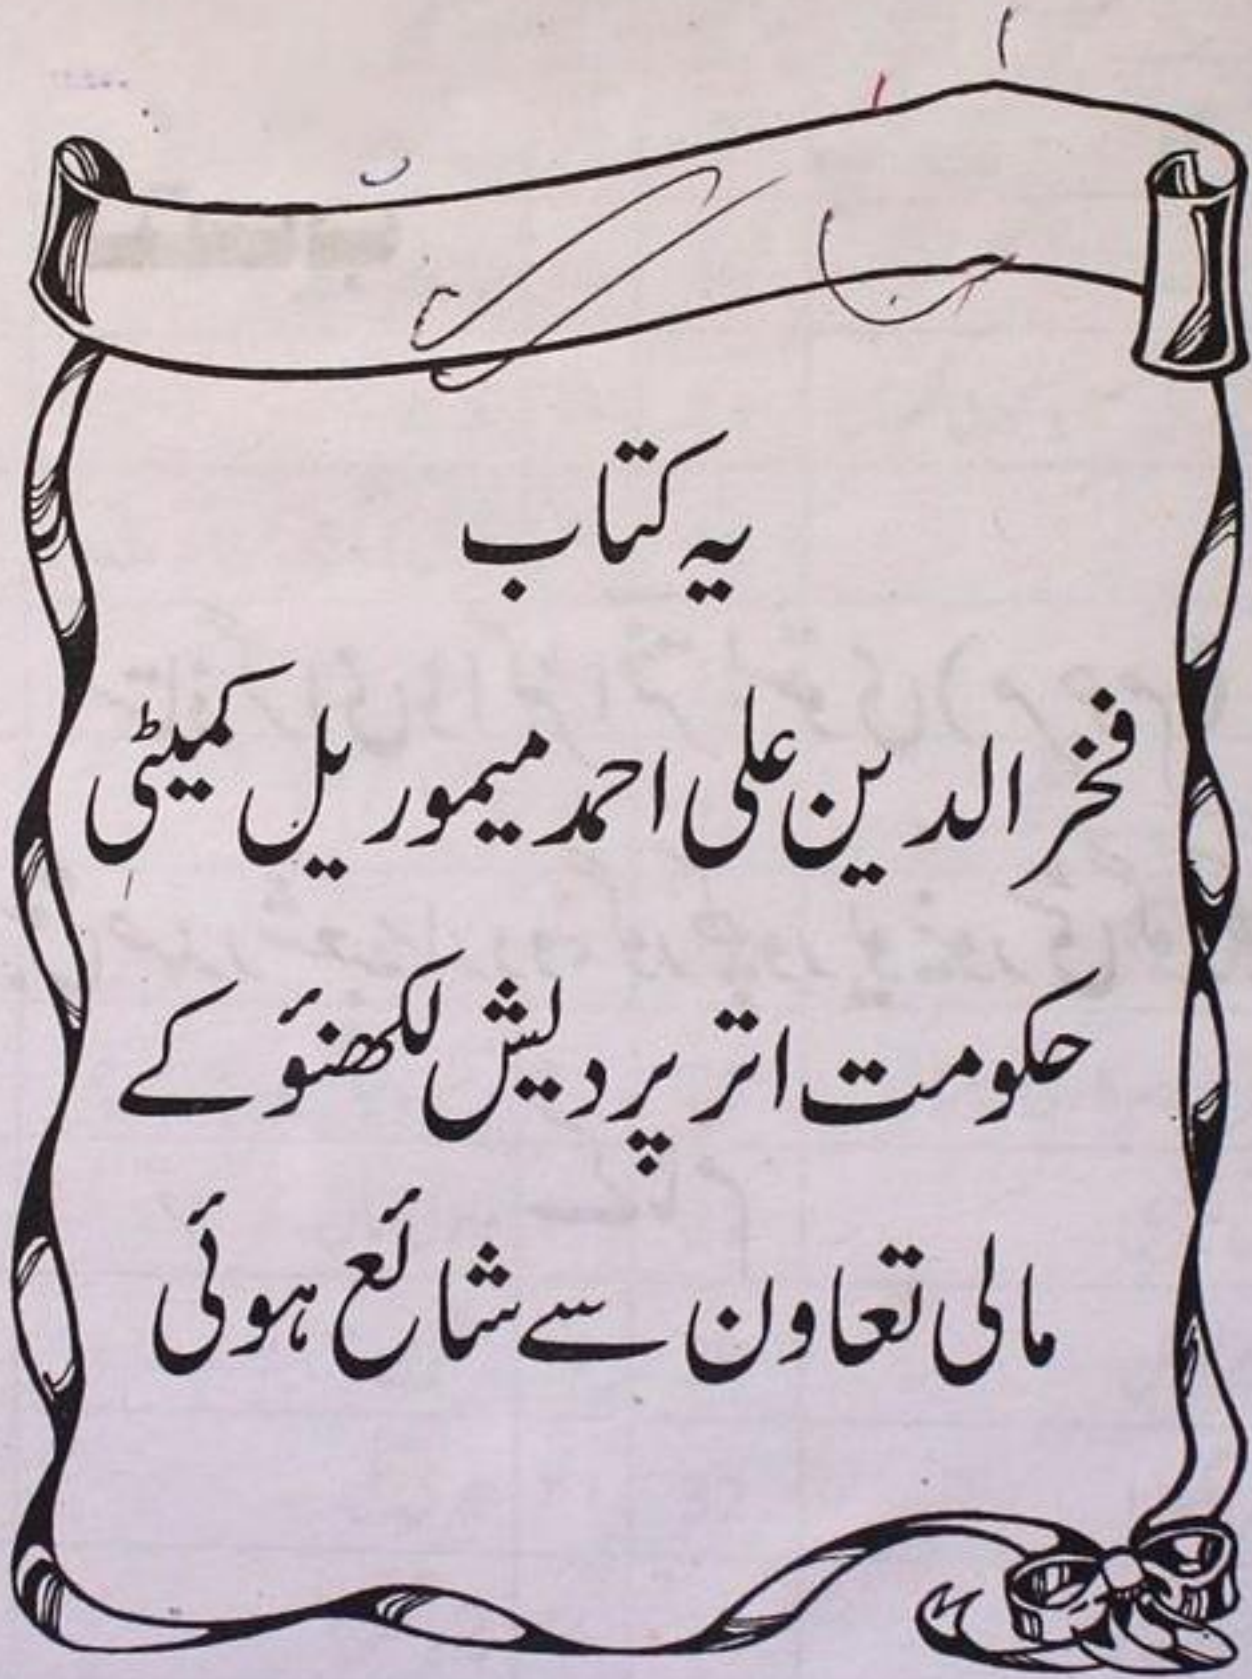 یہ کتاب
فخر الدین علی احمد میموریل کمیٹی
حکومت اتر پردیش لکھنؤ کے
مالی تعاون سے شائع ہوئی